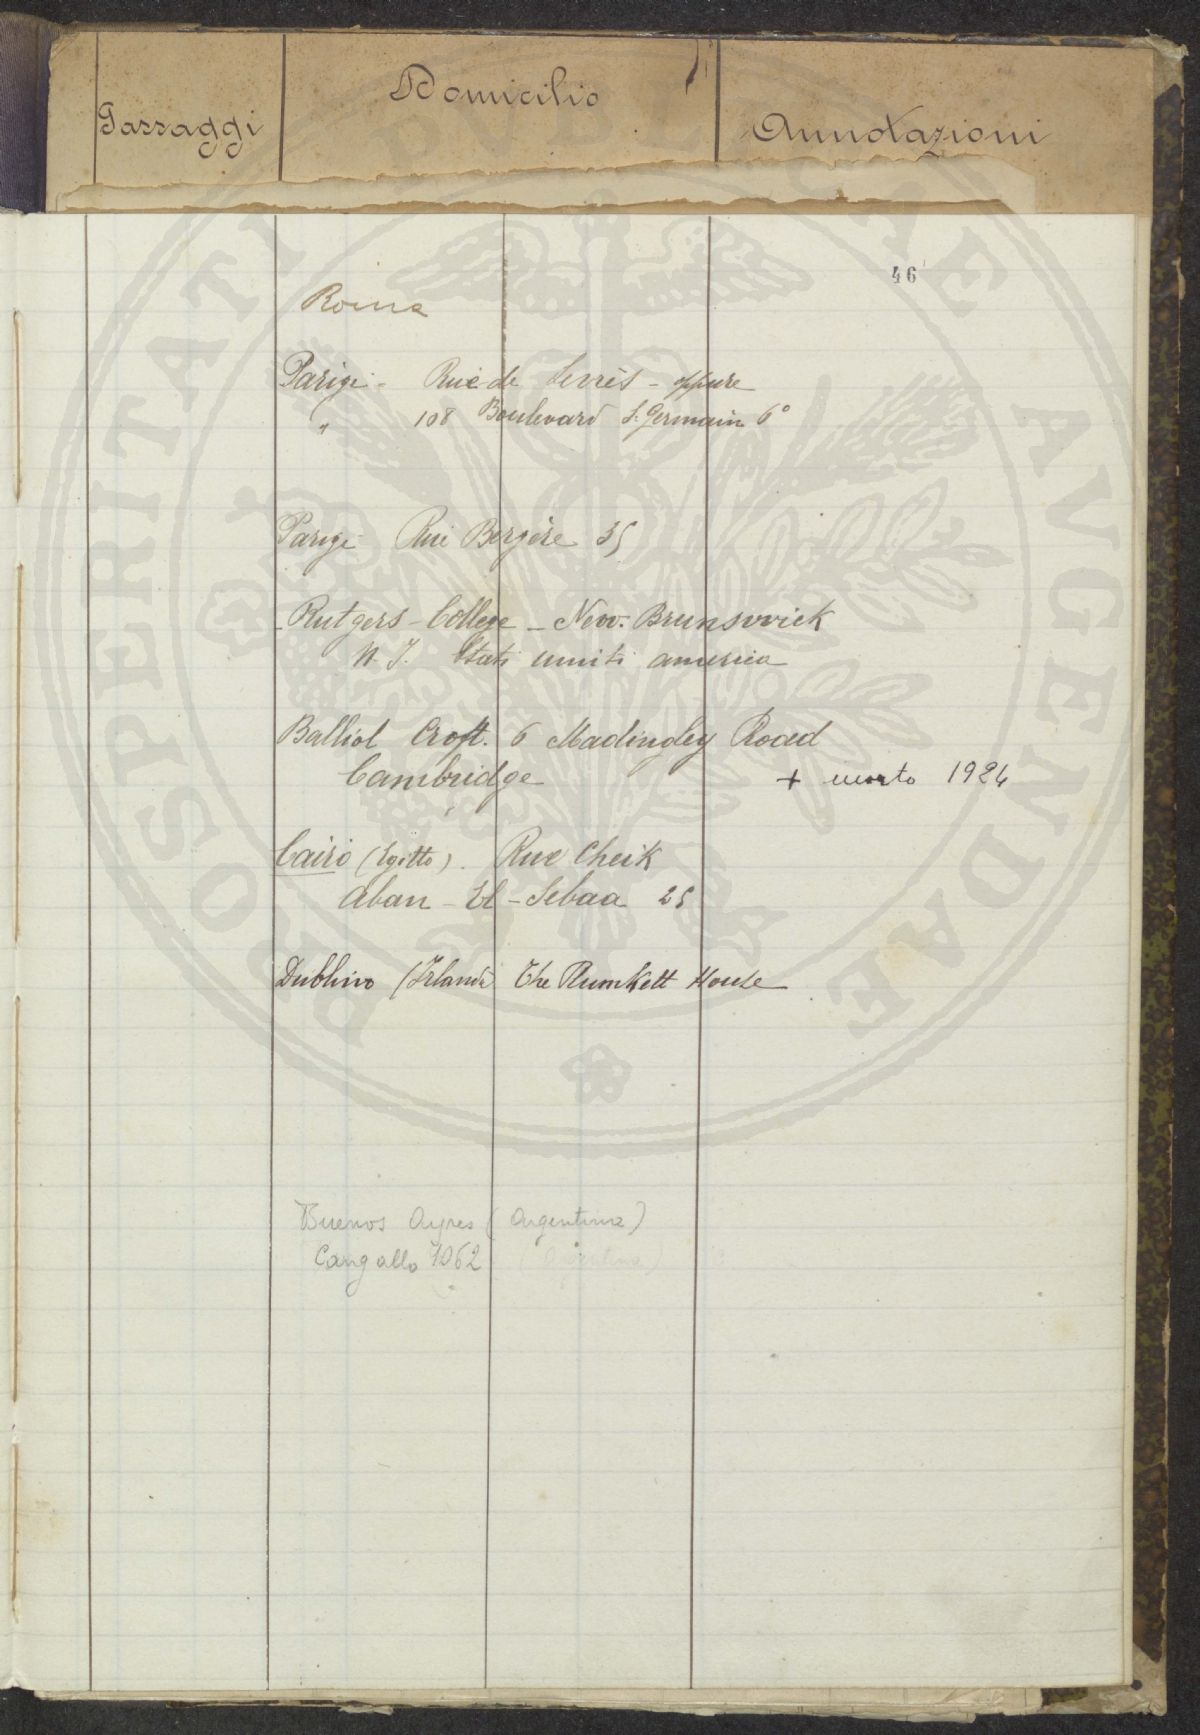 Passaggi
Domicilio
Annotazioni
46
Roma
Parigi - Rue de Serrès - oppure
" 108 Boulevard S. Germain 6°
Parigi Rue Bergère 35
Rutgers - College - New-Brunswick
N. J. Stati Uniti america
Balliol Croft. 6 Madingley Road
Cambridge
+ morto 1924
Cairo (Egitto). Rue Cheik
Aban - El - Sebaa 25
Dublino (Irlanda) The Plumkett House
Buenos Ayres (Argentina)
Cangallo 1062 (Argentina)
PROSPERITATI PVBLICAE AVGENDAE